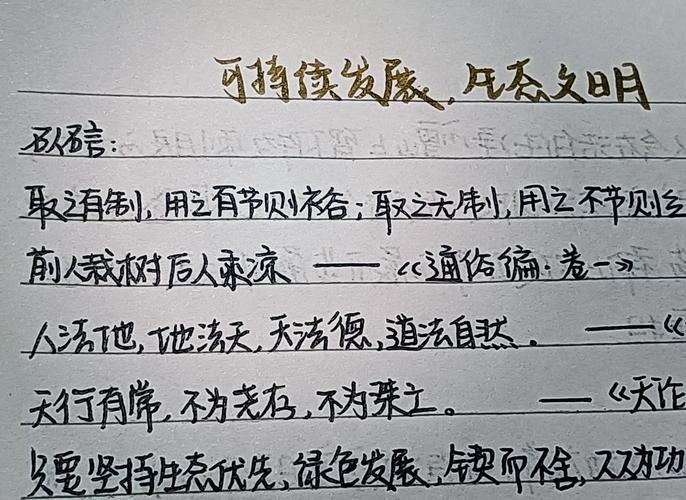 可持续发展,生态文明
取之有制,用之有节则裕;取之无制,用之不节则
前人栽树后人乘凉 —— 《通俗编·卷一》
人法地,地法天,天法德,道法自然。 ——《
天行有常,不为尧存,不为桀立。 ——《天论
只要坚持生态优先,绿色发展,锲而不舍,久久为功